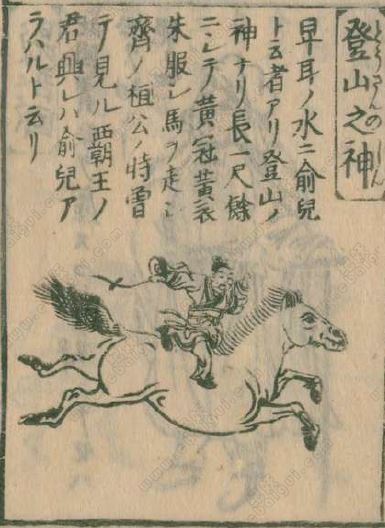 登山之神
早耳ノ水ニ俞兒
ト云者アリ登山ノ
神ナリ長一尺餘
ニシテ黄冠黄衣
朱服シ馬ヲ走シ
齊ノ桓公ノ時曽
テ見ル覇王ノ
君興レハ俞兒ア
ラハルト云リ